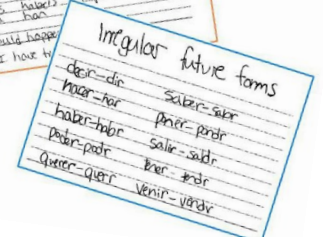 habeis
han
would happen
I have
Irregular future forms
decir-dir
hacer-har
haber-habr
poder-podr
querer-querr
saber-sabr
poner-pondr
salir-saldr
tener-tendr
venir-vendr